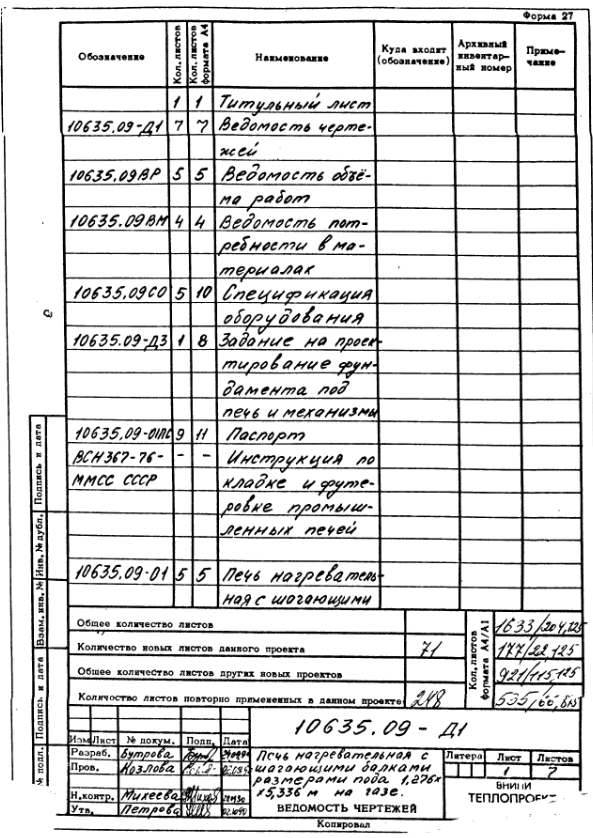 Форма 27
Обозначение Кол. листов Кол. листов формата А4 Наименование Куда входит (обозначение) Архивный инвентарный номер Примечание
1 1 Титульный лист
10635.09-Д1 7 7 Ведомость черте-
жей
10635.09ВР 5 5 Ведомость объё-
ма работ
10635.09ВМ 4 4 Ведомость пот-
ребности в ма-
териалах
10635.09СО 5 10 Спецификация
оборудования
10635.09-Д3 1 8 Задание на проек-
тирование фун-
дамента под
печь и механизмы
10635.09-01ПС 9 11 Паспорт
ВСН367-76- - - Инструкция по
ММСС СССР кладке и футе-
ровке промыш-
ленных печей
10635.09-01 5 5 Печь нагреватель-
ная с шагающими
Общее количество листов
Количество новых листов данного проекта 71
Общее количество листов других новых проектов
Количество листов повторно примененных в данном проекте 248
Кол. листов формата А4/А1
1633/204,125
177/22,125
921/115,125
10635.09 - Д1
Изм Лист № докум. Подп. Дата
Разраб. Бутрова
Пров. Козлова
Н.контр. Михеева
Утв. Петрова
Печь нагревательная с
шагающими балками
размерами пода 1,276х
х5,336 м на газе.
ВЕДОМОСТЬ ЧЕРТЕЖЕЙ
Литера Лист Листов
1 7
ВНИПИ
ТЕПЛОПРОЕКТ
Копировал
№ подл. Подпись и дата Взам. инв. № Инв. № дубл. Подпись и дата